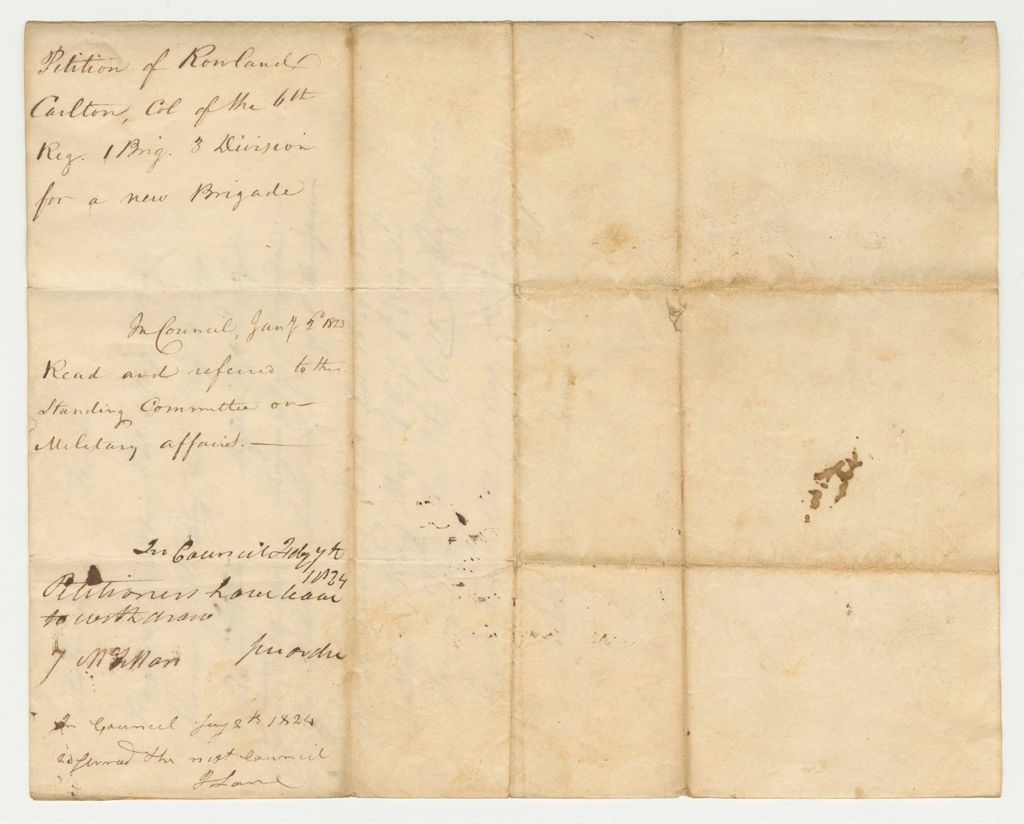 Petition of Rowland
Carlton, Col of the 6th
Reg. 1 Brig. 3 Division
for a new Brigade
In Council, Jany 2d 1823
Read and referred to the
Standing Committee on
Military affairs.—
In Council 7th
1824
Petitioners have leave
to withdraw
per order
In Council Jany 2th 1824
referred the next Council